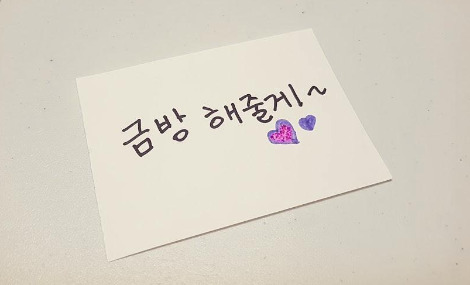 금방 해줄게~